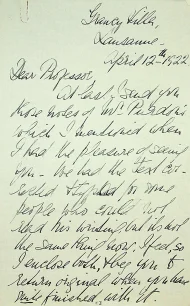 Grancy Villa,
Lausanne.
April 12th 1922
Dear Professor,
At last I send you
those notes of Mr. Purdon's
which I mentioned when
I had the pleasure of seeing
you. We had the text
typed for some
people who could not
read his writing but it is not
the same
I enclose both, & beg you to
return original when you have
quite finished with it